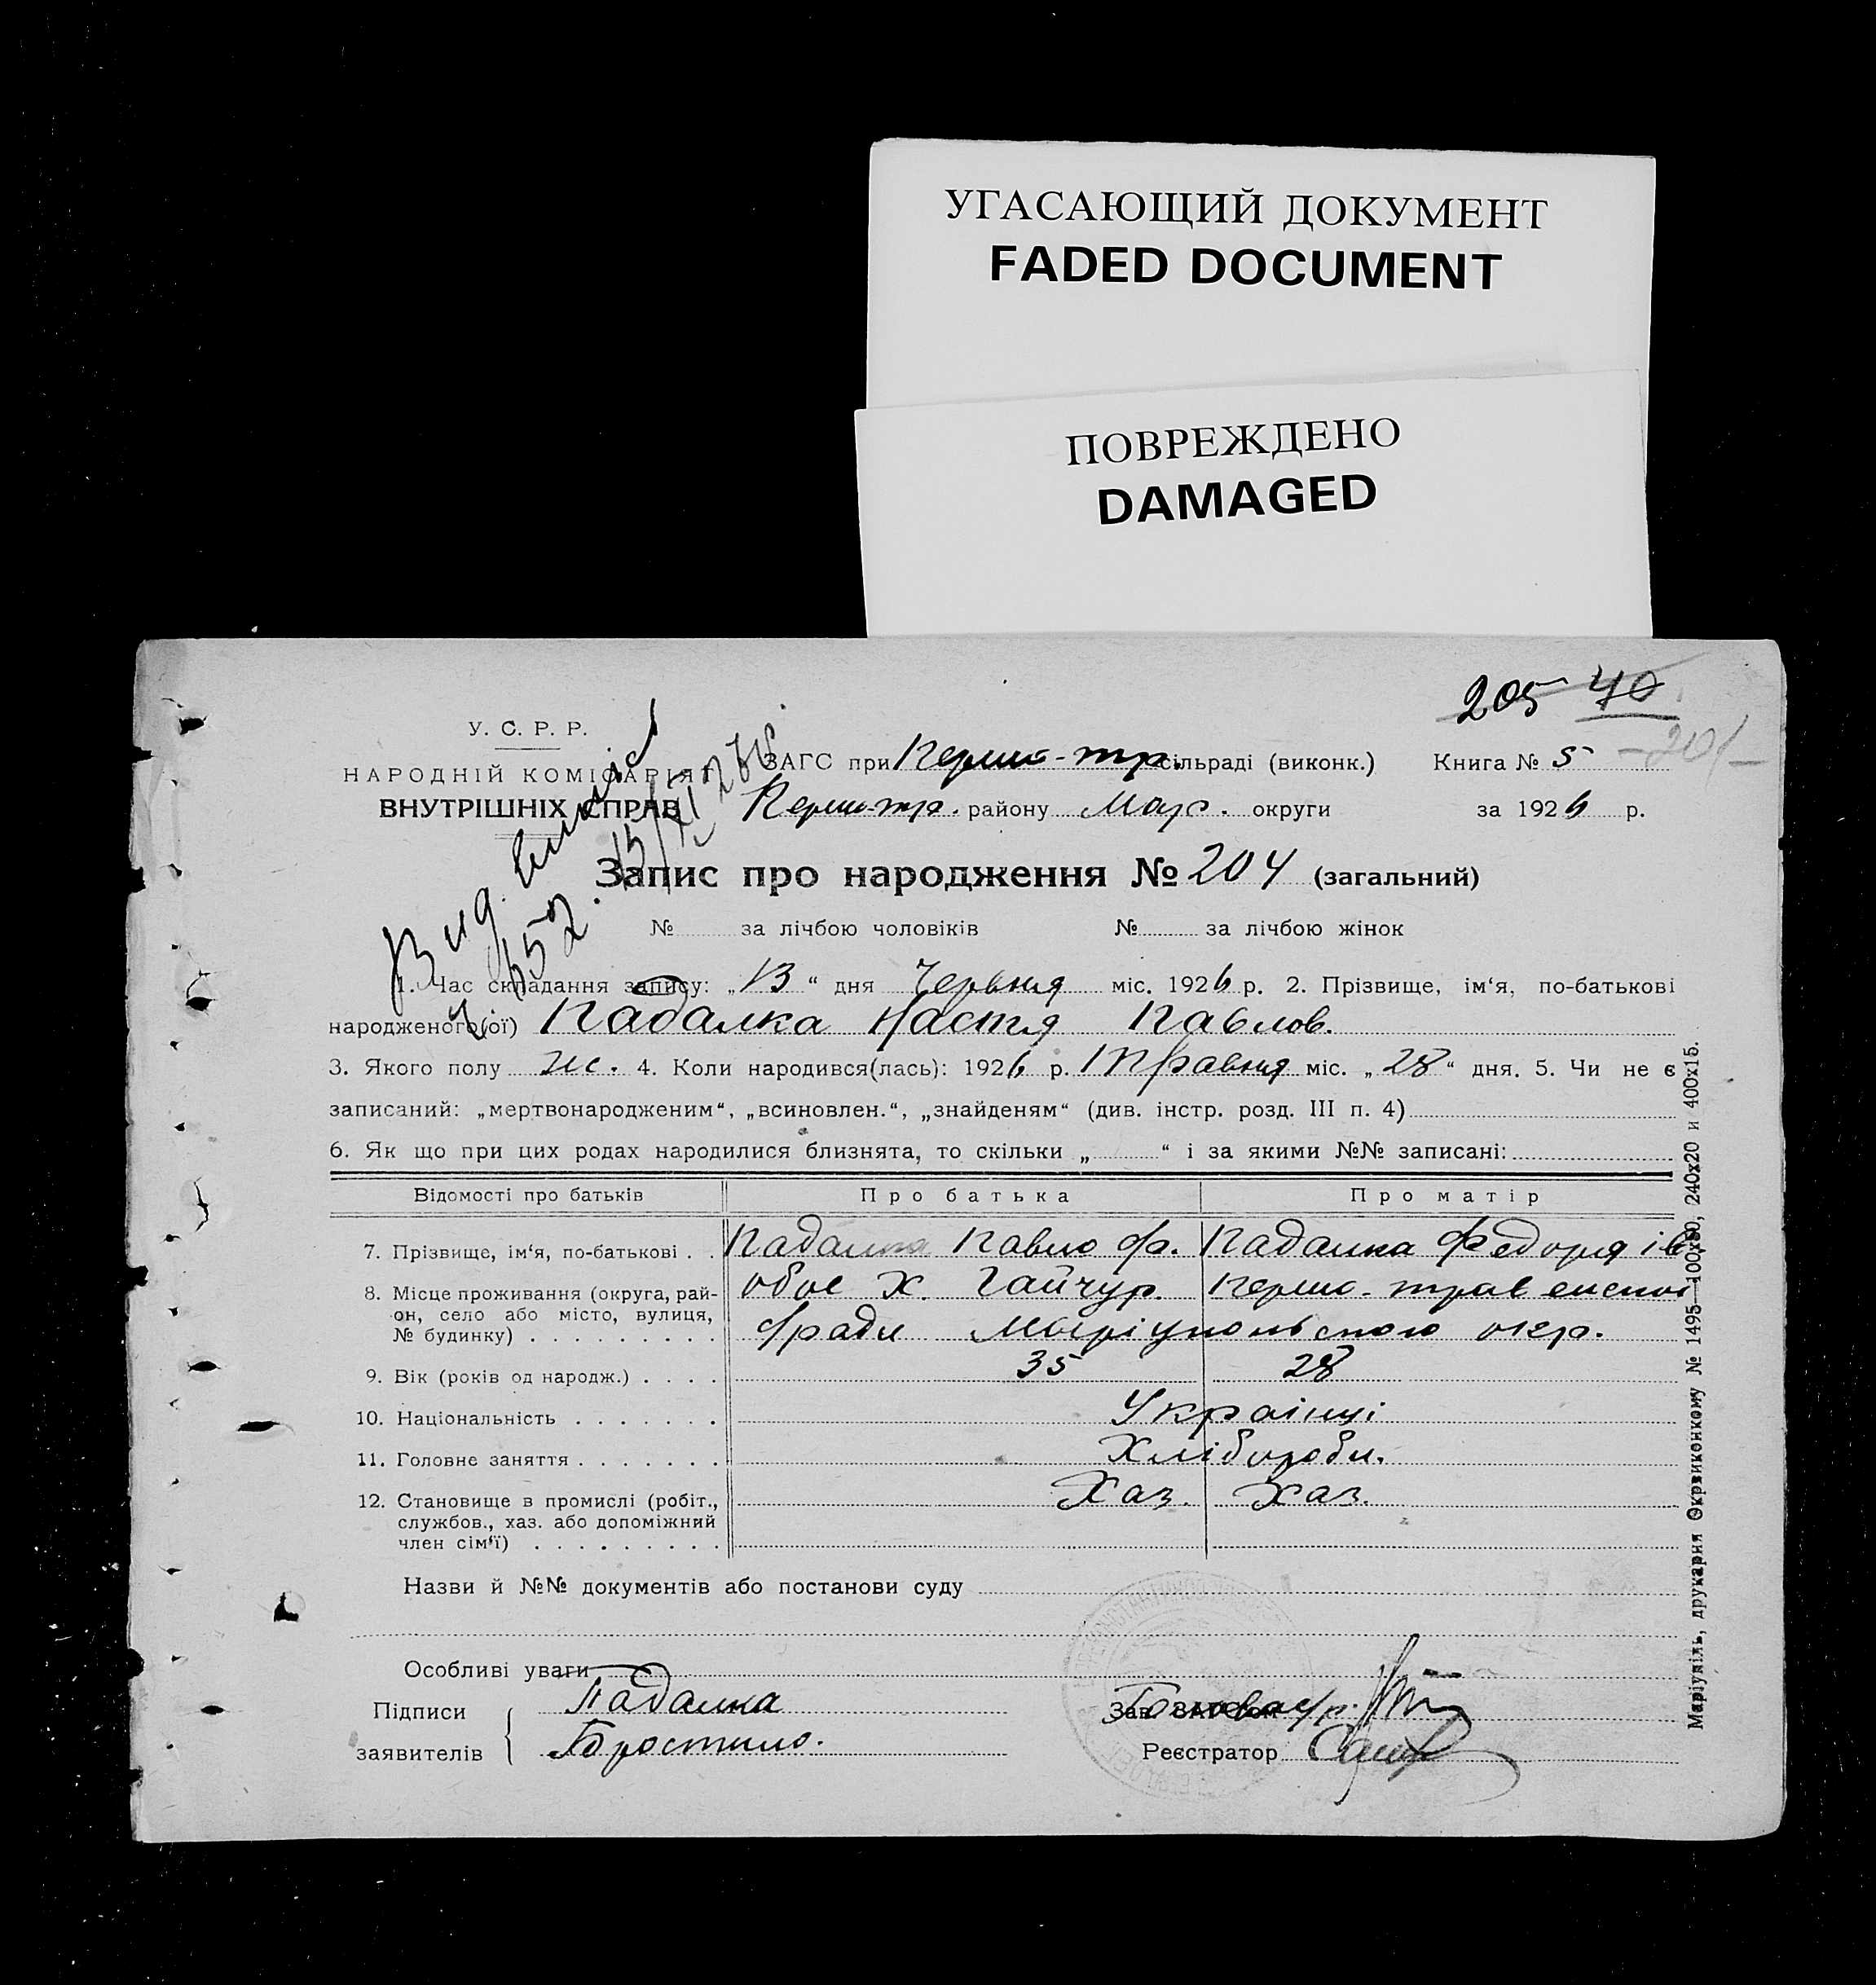 УГАСАЮЩИЙ ДОКУМЕНТ
FADED DOCUMENT
ПОВРЕЖДЕНО
DAMAGED
205 40
201
У. С. Р. Р.
НАРОДНІЙ КОМІСАРІЯТ
ВНУТРІШНІХ СПРАВ
ЗАГС при Першо-тр. сільраді (виконк.) Книга № 5
Першо-тр. району Мар. округи за 1926 р.
Вид.
Запис про народження № 204 (загальний)
№ за лічбою чоловіків № за лічбою жінок
1. Час складання запису: „13“ дня Червня міс. 1926 р. 2. Прізвище, ім‘я, по-батькові
народженого(ої) Падалка Настя Павлов.
3. Якого полу ж. 4. Коли народився(лась): 1926 р. Травня міс. „28“ дня. 5. Чи не є
записаний: „мертвонародженим“, „всиновлен.“, „знайденям“ (див. інстр. розд. III п. 4)
6. Як що при цих родах народилися близнята, то скільки „ “ і за якими №№ записані:
Відомості про батьків Про батька Про матір
7. Прізвище, ім‘я, по-батькові . . Падалка Павло Ф. Падалка Федоря ів
8. Місце проживання (округа, рай-
он, село або місто, вулиця,
№ будинку) . . . . . . . . .
обоє х. Гайчур. Першо-травенської
с/ради Маріупольского окр.
9. Вік (років од народж.) . . . . 35 28
10. Національність . . . . . . . Українці
11. Головне заняття . . . . . . . Хлібороби.
12. Становище в промислі (робіт.,
службов., хаз. або допоміжний
член сім‘ї) . . . . . . . . .
Хаз. Хаз.
Назви й №№ документів або постанови суду
Особливі уваги
Підписи
заявителів
Падалка
Зав. ЗАГСом
Реєстратор
Маріупіль, друкарня Окрвиконкому № 1495—100х80, 240х20 и 400х15.